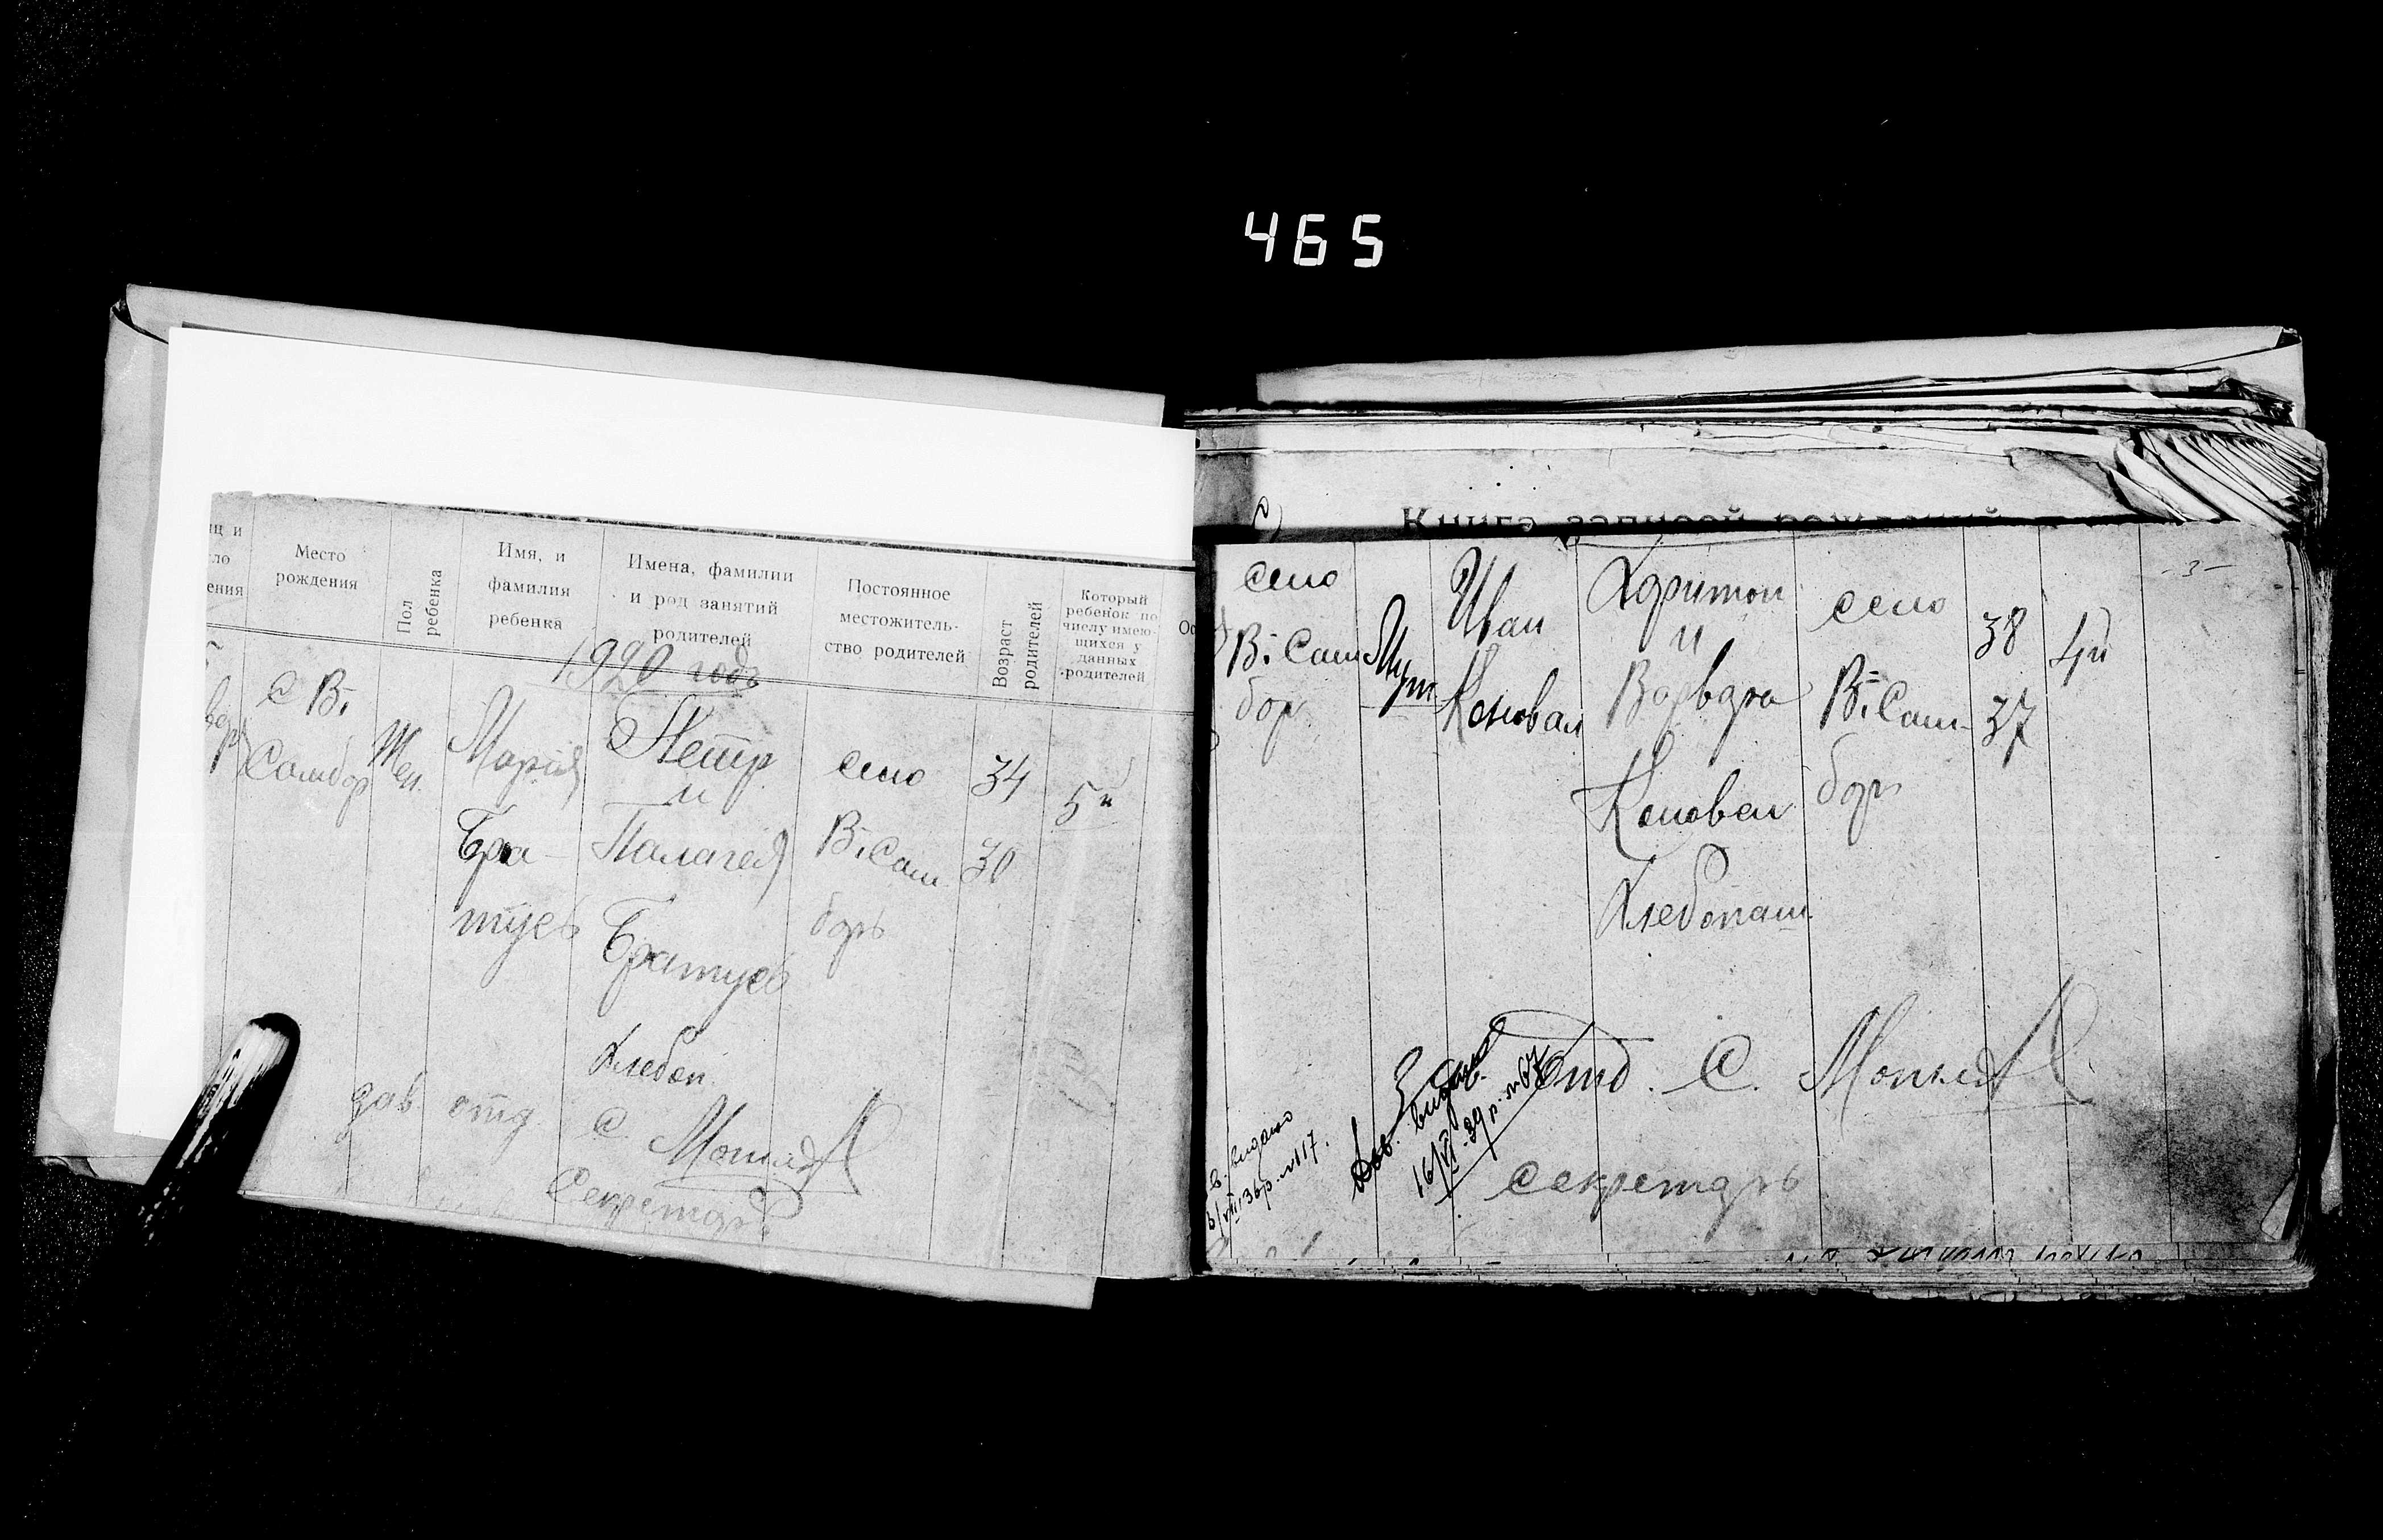 465
Место
рождения
Пол
ребенка
Имя, и
фамилия
ребенка
Имена, фамилии
и род занятий
родителей
Постоянное
местожитель-
ство родителей
Возраст
родителей
Который
ребенок по
числу имею-
щихся у
данных
родителей
1920 годъ
с В.
Самбор
Жен.
Мария
Бра-
тусь
Петр
и
Палагея
Братусь
Хлебоп.
село
В. Сам
боръ
34
30
5й
зав. отд.
С.
Секретарь
Книга записей рождений
село
В. Сам
бор
Муж
Иван
Коновал
Харитон
и
Варвара
Коновал
Хлебопаш.
село
В. Сам-
боръ
38
37
4й
- 3 -
З
Отд. С.
Дов. видано
16/VI-39 р. №67
видано
VIII 36р. №117.
секретарь